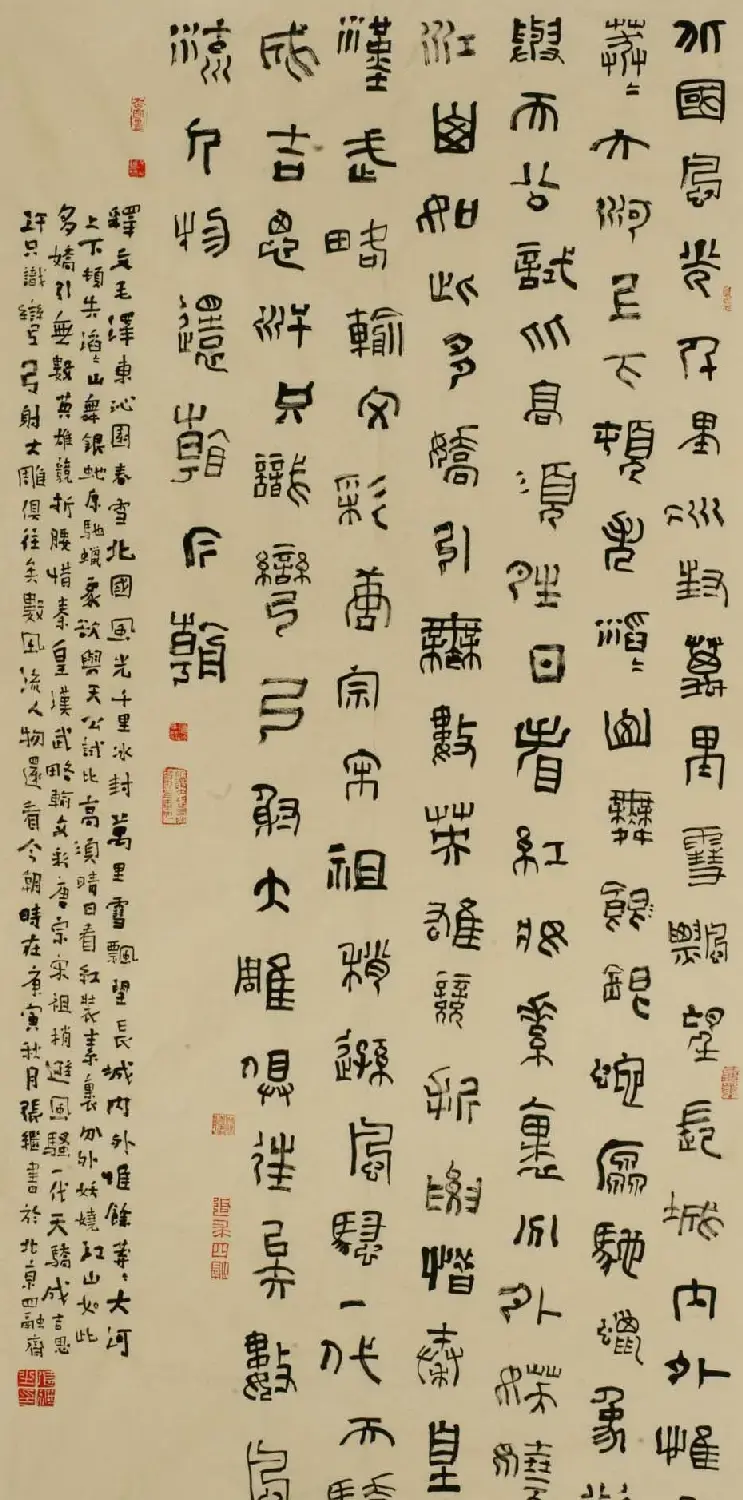 北國風光千里冰封萬里雪飄望長城内外惟
莽〻大河上下頓失滔〻山舞銀蛇原馳蠟象
與天公試比高須晴日看紅妝素裏分外妖嬈
江山如此多嬌引無數英雄競折腰惜秦皇
漢武略輸文彩唐宗宋祖稍遜風騷一代天驕
成吉思汗只識彎弓射大雕俱往矣數風
流人物還看今朝
釋文毛澤東沁園春雪北國風光千里冰封萬里雪飄望長城内外惟餘莽〻大河
上下頓失滔〻山舞銀蛇原馳蠟象欲與天公試比高須晴日看紅裝素裏分外妖嬈江山如此
多嬌引無數英雄競折腰惜秦皇漢武略輸文彩唐宗宋祖稍遜風騷一代天驕成吉思
汗只識彎弓射大雕俱往矣數風流人物還看今朝時在庚寅秋月張繼書於北京四融齋